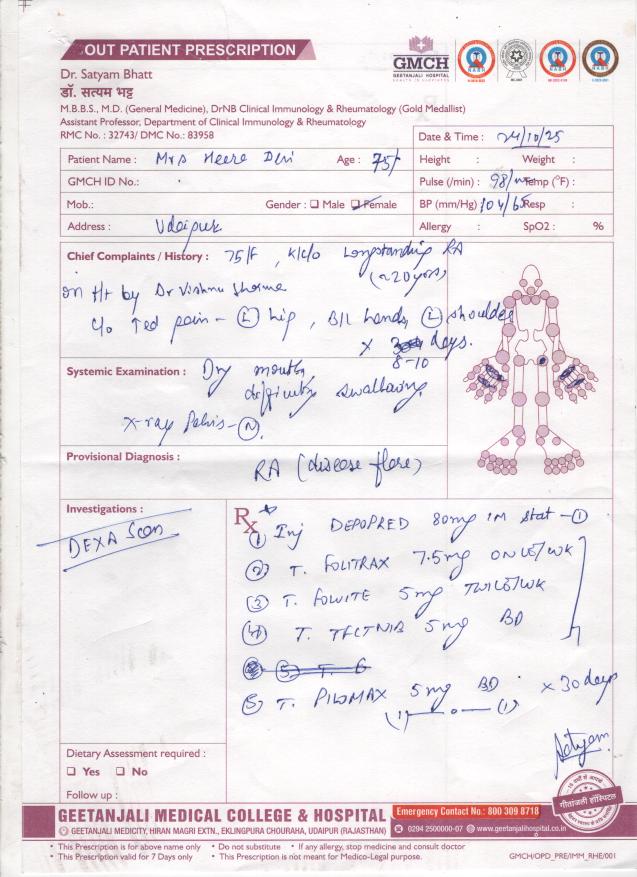 OUT PATIENT PRESCRIPTION
GMCH
GEETANJALI HOSPITAL
Dr. Satyam Bhatt
डॉ. सत्यम भट्ट
M.B.B.S., M.D. (General Medicine), DrNB Clinical Immunology & Rheumatology (Gold Medallist)
Assistant Professor, Department of Clinical Immunology & Rheumatology
RMC No. : 32743/ DMC No.: 83958
Date & Time : 24/10/25
Patient Name : Mrs Heera Devi Age : 75/
Height : Weight :
GMCH ID No.:
Pulse (/min) : 98/min Temp (°F) :
Mob.: Gender : Male Female
BP (mm/Hg) 104/65 Resp :
Address : Udaipur
Allergy : SpO2 : %
Chief Complaints / History : 75/F, K/C/O Longstanding RA
(~20yrs)
on t/t by Dr Vishnu Sharma
C/o ↑ed pain - (L) hip, B/L hands, (L) shoulder
x 8-10 days.
Systemic Examination : Dry mouth,
difficulty swallowing
X-ray Pelvis - (N)
Provisional Diagnosis :
RA (disease flare)
Investigations :
DEXA Scan
Rx
(1) Inj DEPOPRED 80mg IM stat - (1)
(2) T. FOLITRAX 7.5mg ONCE/WK
(3) T. FOLVITE 5mg TWICE/WK
(4) T. TFCTNIB 5mg BD
(5) T. PILOMAX 5mg BD x 30 days
(1)—0—(1)
Satyam
Dietary Assessment required :
Yes No
Follow up :
गीतांजली हॉस्पिटल
GEETANJALI MEDICAL COLLEGE & HOSPITAL
Emergency Contact No.: 800 309 8718
GEETANJALI MEDICITY, HIRAN MAGRI EXTN., EKLINGPURA CHOURAHA, UDAIPUR (RAJASTHAN)
0294 2500000-07 www.geetanjalihospital.co.in
• This Prescription is for above name only • Do not substitute • If any allergy, stop medicine and consult doctor
• This Prescription valid for 7 Days only • This Prescription is not meant for Medico-Legal purpose.
GMCH/OPD_PRE/IMM_RHE/001